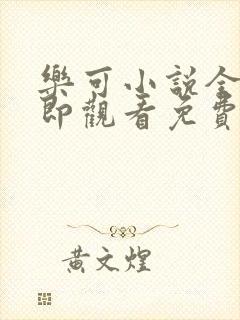 樂可小説全
即觀看免費
黃文煌